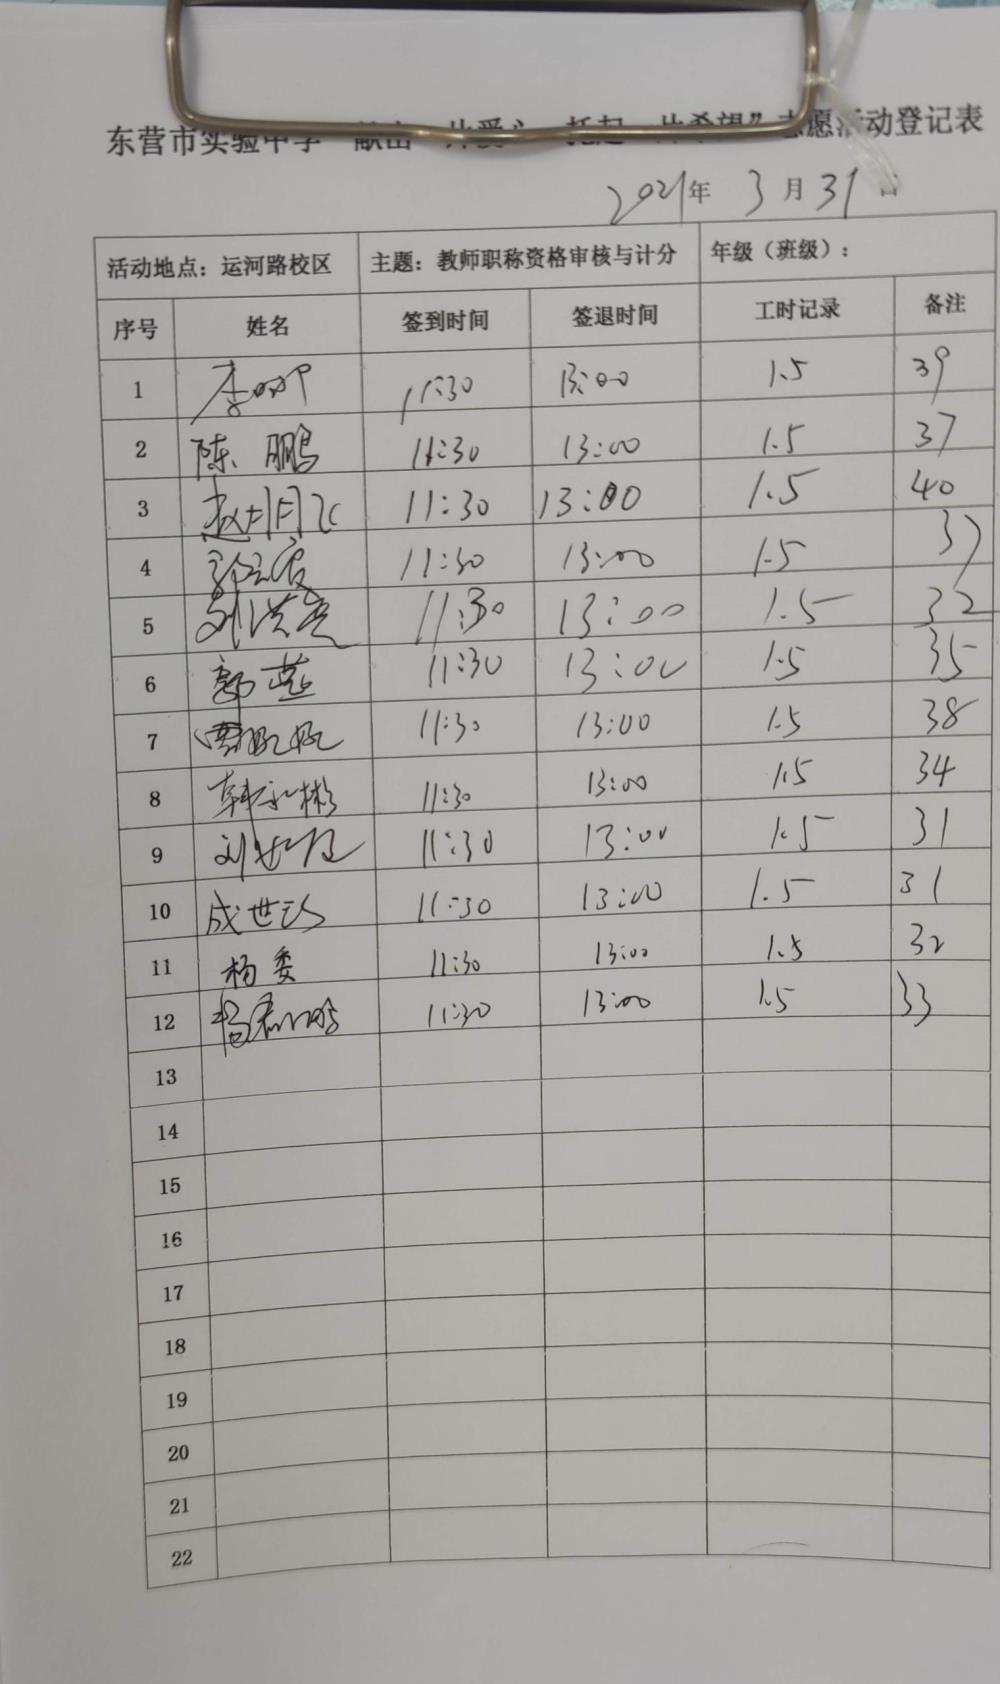 东营市实验中学"献出一片爱心 托起一片希望"志愿活动登记表
2021年 3月31日
活动地点：运河路校区 主题：教师职称资格审核与计分 年级（班级）：
序号 姓名 签到时间 签退时间 工时记录 备注
1 11:30 13:00 1.5 39
2 陈鹏 11:30 13:00 1.5 37
3 赵月飞 11:30 13:00 1.5 40
4 11:30 13:00 1.5 37
5 刘洪亮 11:30 13:00 1.5 32
6 郭燕 11:30 13:00 1.5 35
7 11:30 13:00 1.5 38
8 韩彬 11:30 13:00 1.5 34
9 刘 11:30 13:00 1.5 31
10 成世 11:30 13:00 1.5 31
11 杨委 11:30 13:00 1.5 32
12 杨鹏 11:30 13:00 1.5 33
13
14
15
16
17
18
19
20
21
22